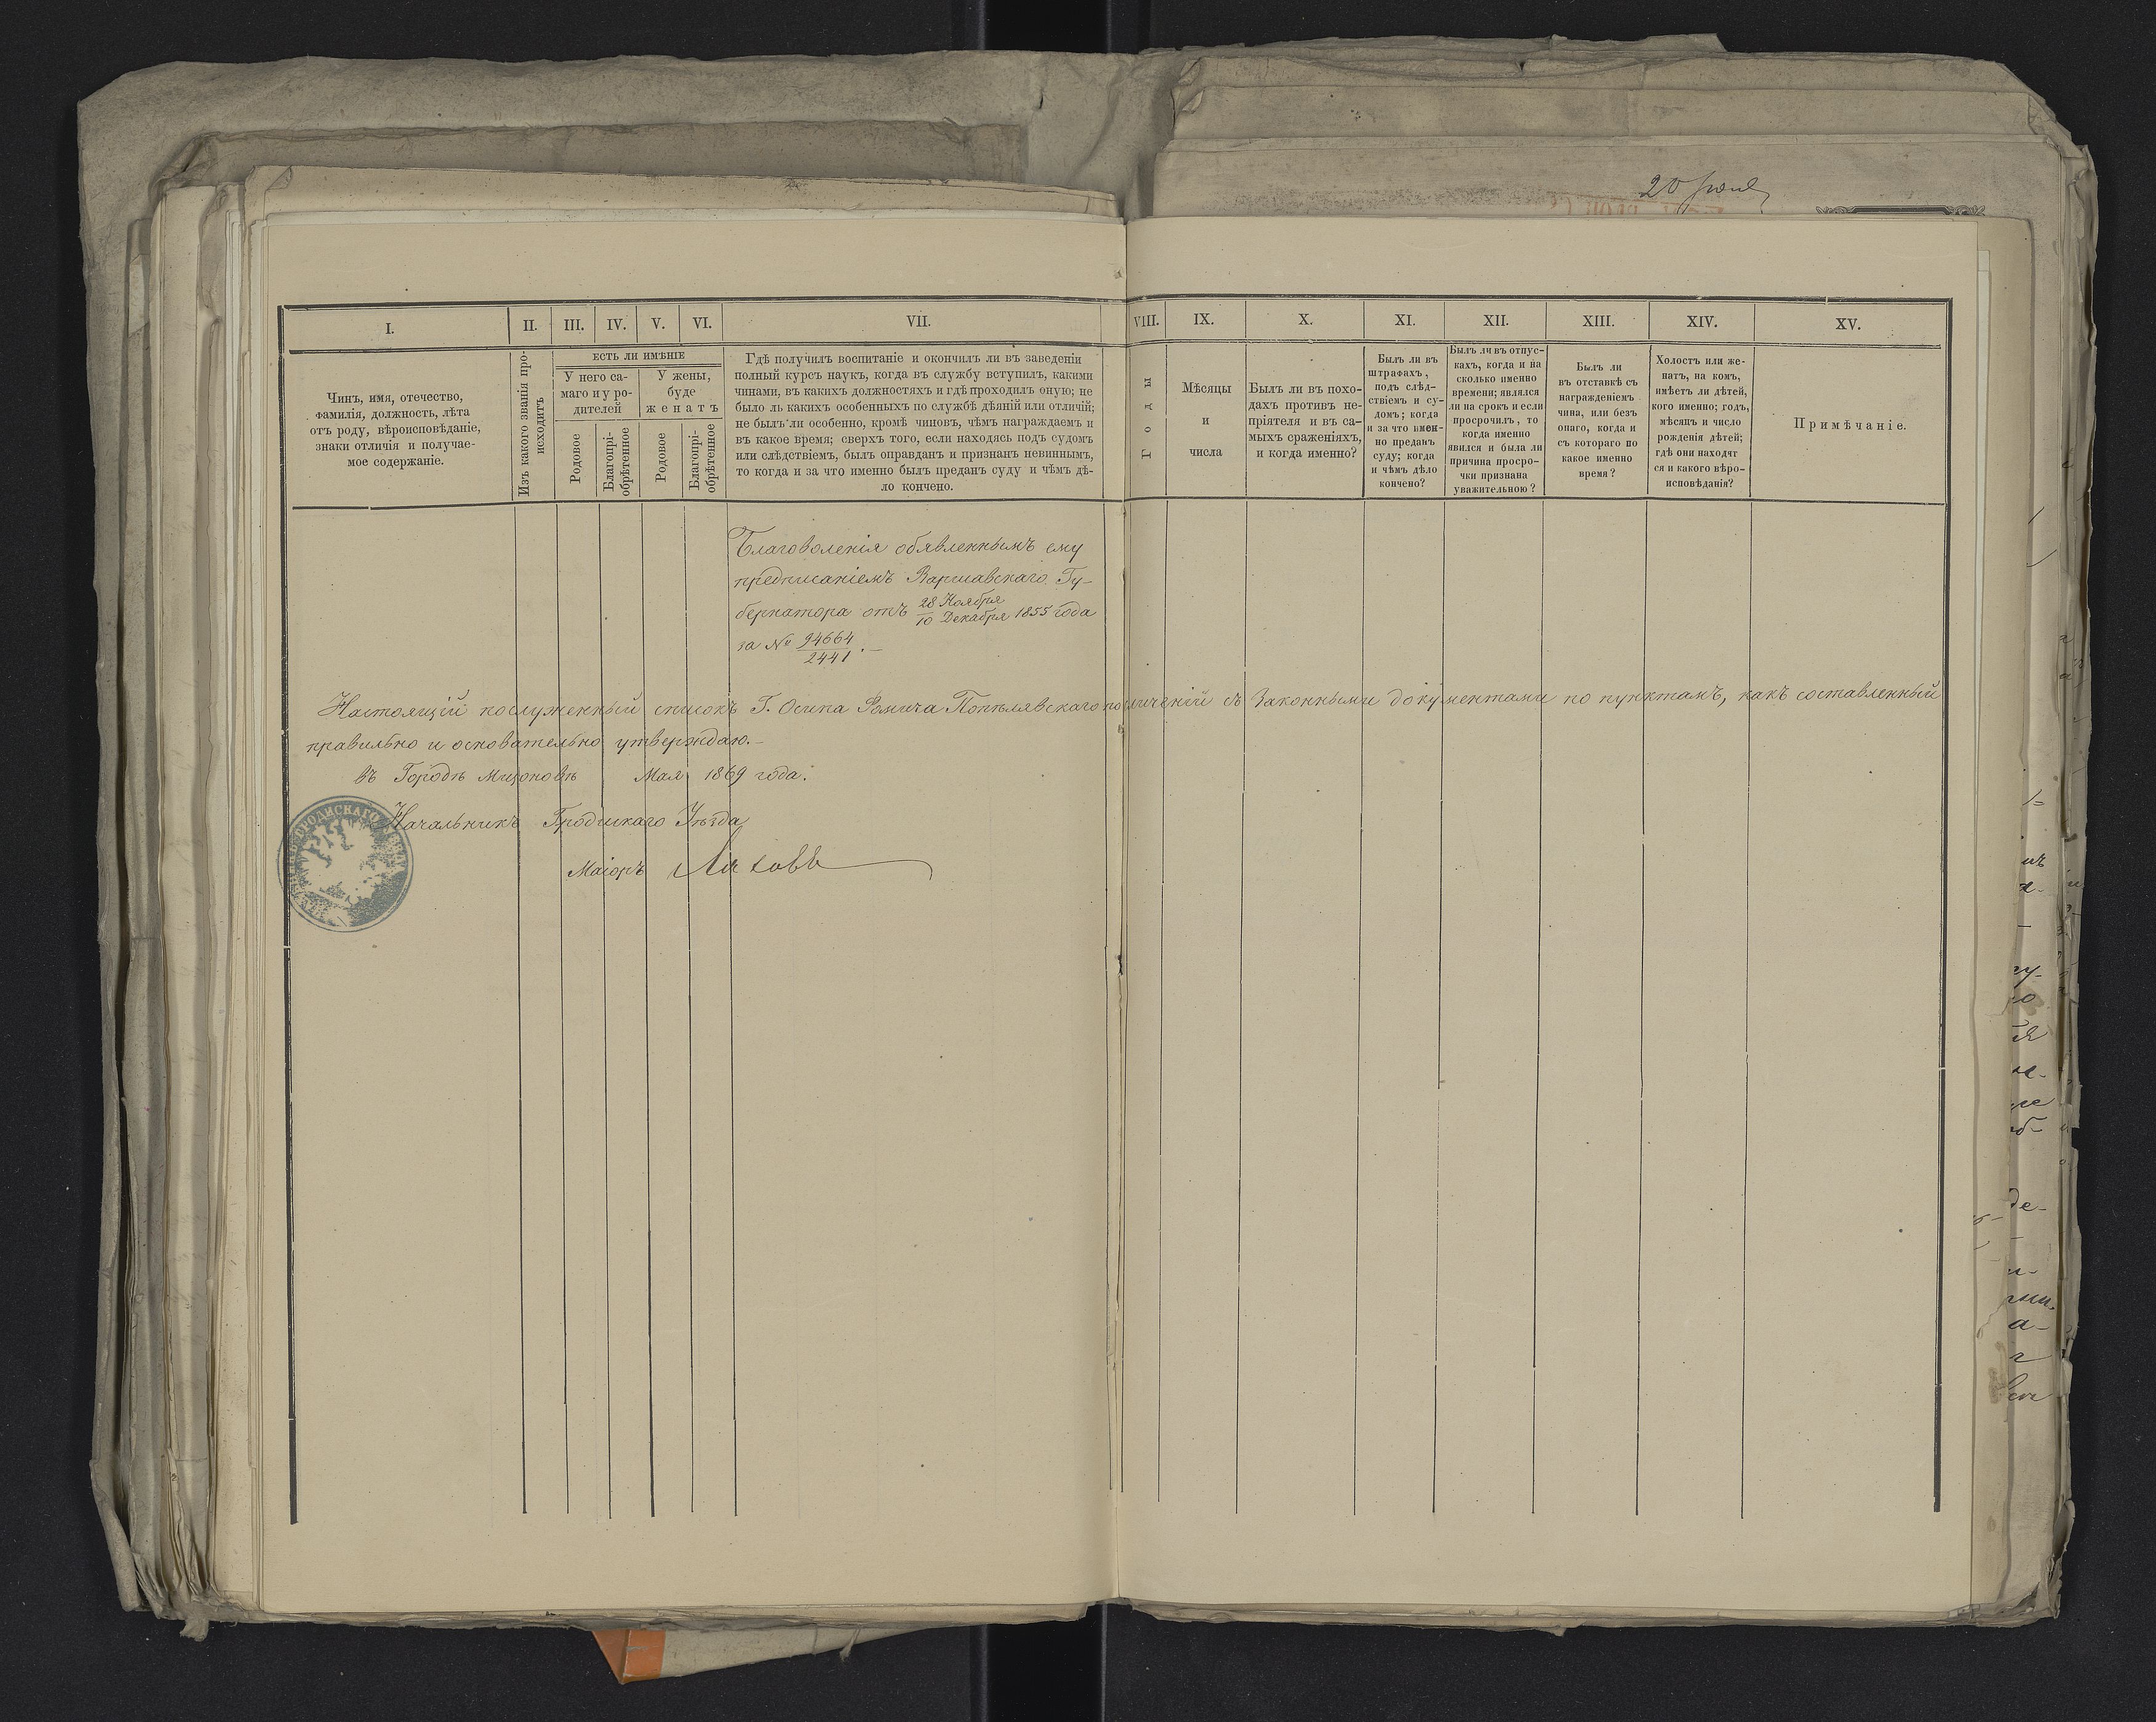 20
I. II. III. IV. V. VI. VII. VIII. IX. X. XI. XII. XIII. XIV. XV.
Чинъ, имя, отечество,
фамилія, должность, лѣта
отъ роду, вѣроисповѣданіе,
знаки отличія и получае-
мое содержаніе.
Изъ какого званія про-
исходитъ
ЕСТЬ ЛИ ИМѢНІЕ
У него са-
маго и у ро-
дителей
У жены,
буде
женатъ
Родовое
Благопрі-
обрѣтенное
Родовое
Благопрі-
обрѣтенное
Гдѣ получилъ воспитаніе и окончилъ ли въ заведеніи
полный курсъ наукъ, когда въ службу вступилъ, какими
чинами, въ какихъ должностяхъ и гдѣ проходилъ оную; не
было ль какихъ особенныхъ по службѣ дѣяній или отличій;
не былъ ли особенно, кромѣ чиновъ, чѣмъ награждаемъ и
въ какое время; сверхъ того, если находясь подъ судомъ
или слѣдствіемъ, былъ оправданъ и признанъ невиннымъ,
то когда и за что именно былъ преданъ суду и чѣмъ дѣ-
ло кончено.
Годы
Мѣсяцы
и
числа
Былъ ли въ похо-
дахъ противъ не-
пріятеля и въ са-
мыхъ сраженіяхъ,
и когда именно?
Былъ ли въ
штрафахъ,
подъ слѣд-
ствіемъ и су-
домъ; когда
и за что имен-
но преданъ
суду; когда
и чѣмъ дѣло
кончено?
Былъ ли въ отпус-
кахъ, когда и на
сколько именно
времени; являлся
ли на срокъ и если
просрочилъ, то
когда именно
явился и была ли
причина просро-
чки признана
уважительною?
Былъ ли
въ отставкѣ съ
награжденіемъ
чина, или безъ
онаго, когда и
съ котораго по
какое именно
время?
Холостъ или же-
натъ, на комъ,
имѣетъ ли дѣтей,
кого именно; годъ,
мѣсяцъ и число
рожденія дѣтей;
гдѣ они находят
ся и какого вѣро-
исповѣданія?
Примѣчаніе.
Благоволенія обявленнымъ ему
предписаніемъ Варшавскаго Гу-
бернатора отъ 28 Ноября
10 Декабря 1855 года
за № 94664
2441 .—
Настоящій послуженный списокъ Г. Осипа Ромича Попѣлявскаго по сличеній съ Законными документами по пунктамъ, какъ составленный
правильно и основательно утверждаю.—
въ Городѣ Мщоновѣ Мая 1869 года.
Начальникъ Гродискаго Уѣзда
Маіоръ